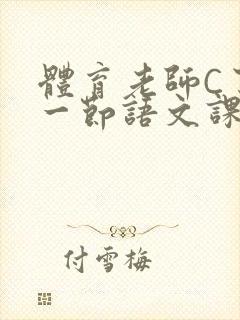 體育老師C
一節語文課
付雪梅